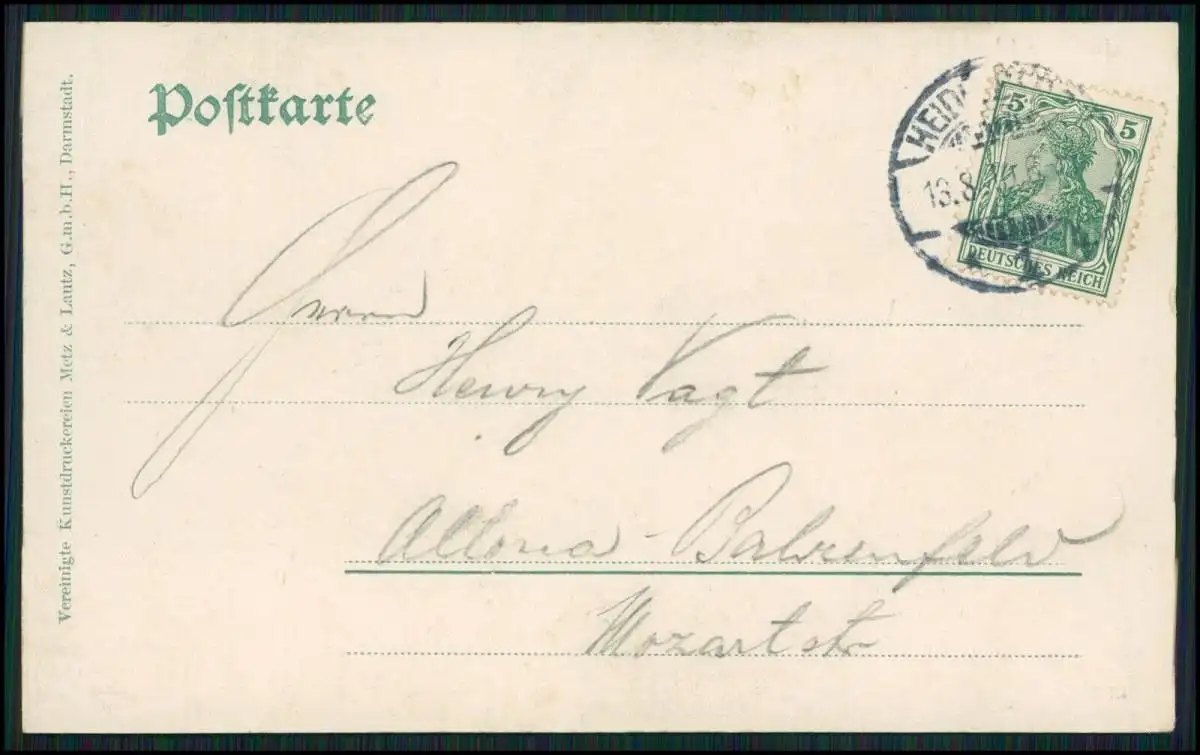 Postkarte
5 5
DEUTSCHES REICH
HEID
13.8.
Herrn
Henry Vagt
Altona-Bahrenfeld
Mozartstr
Vereinigte Kunstdruckereien Metz & Lautz, G.m.b.H., Darmstadt.